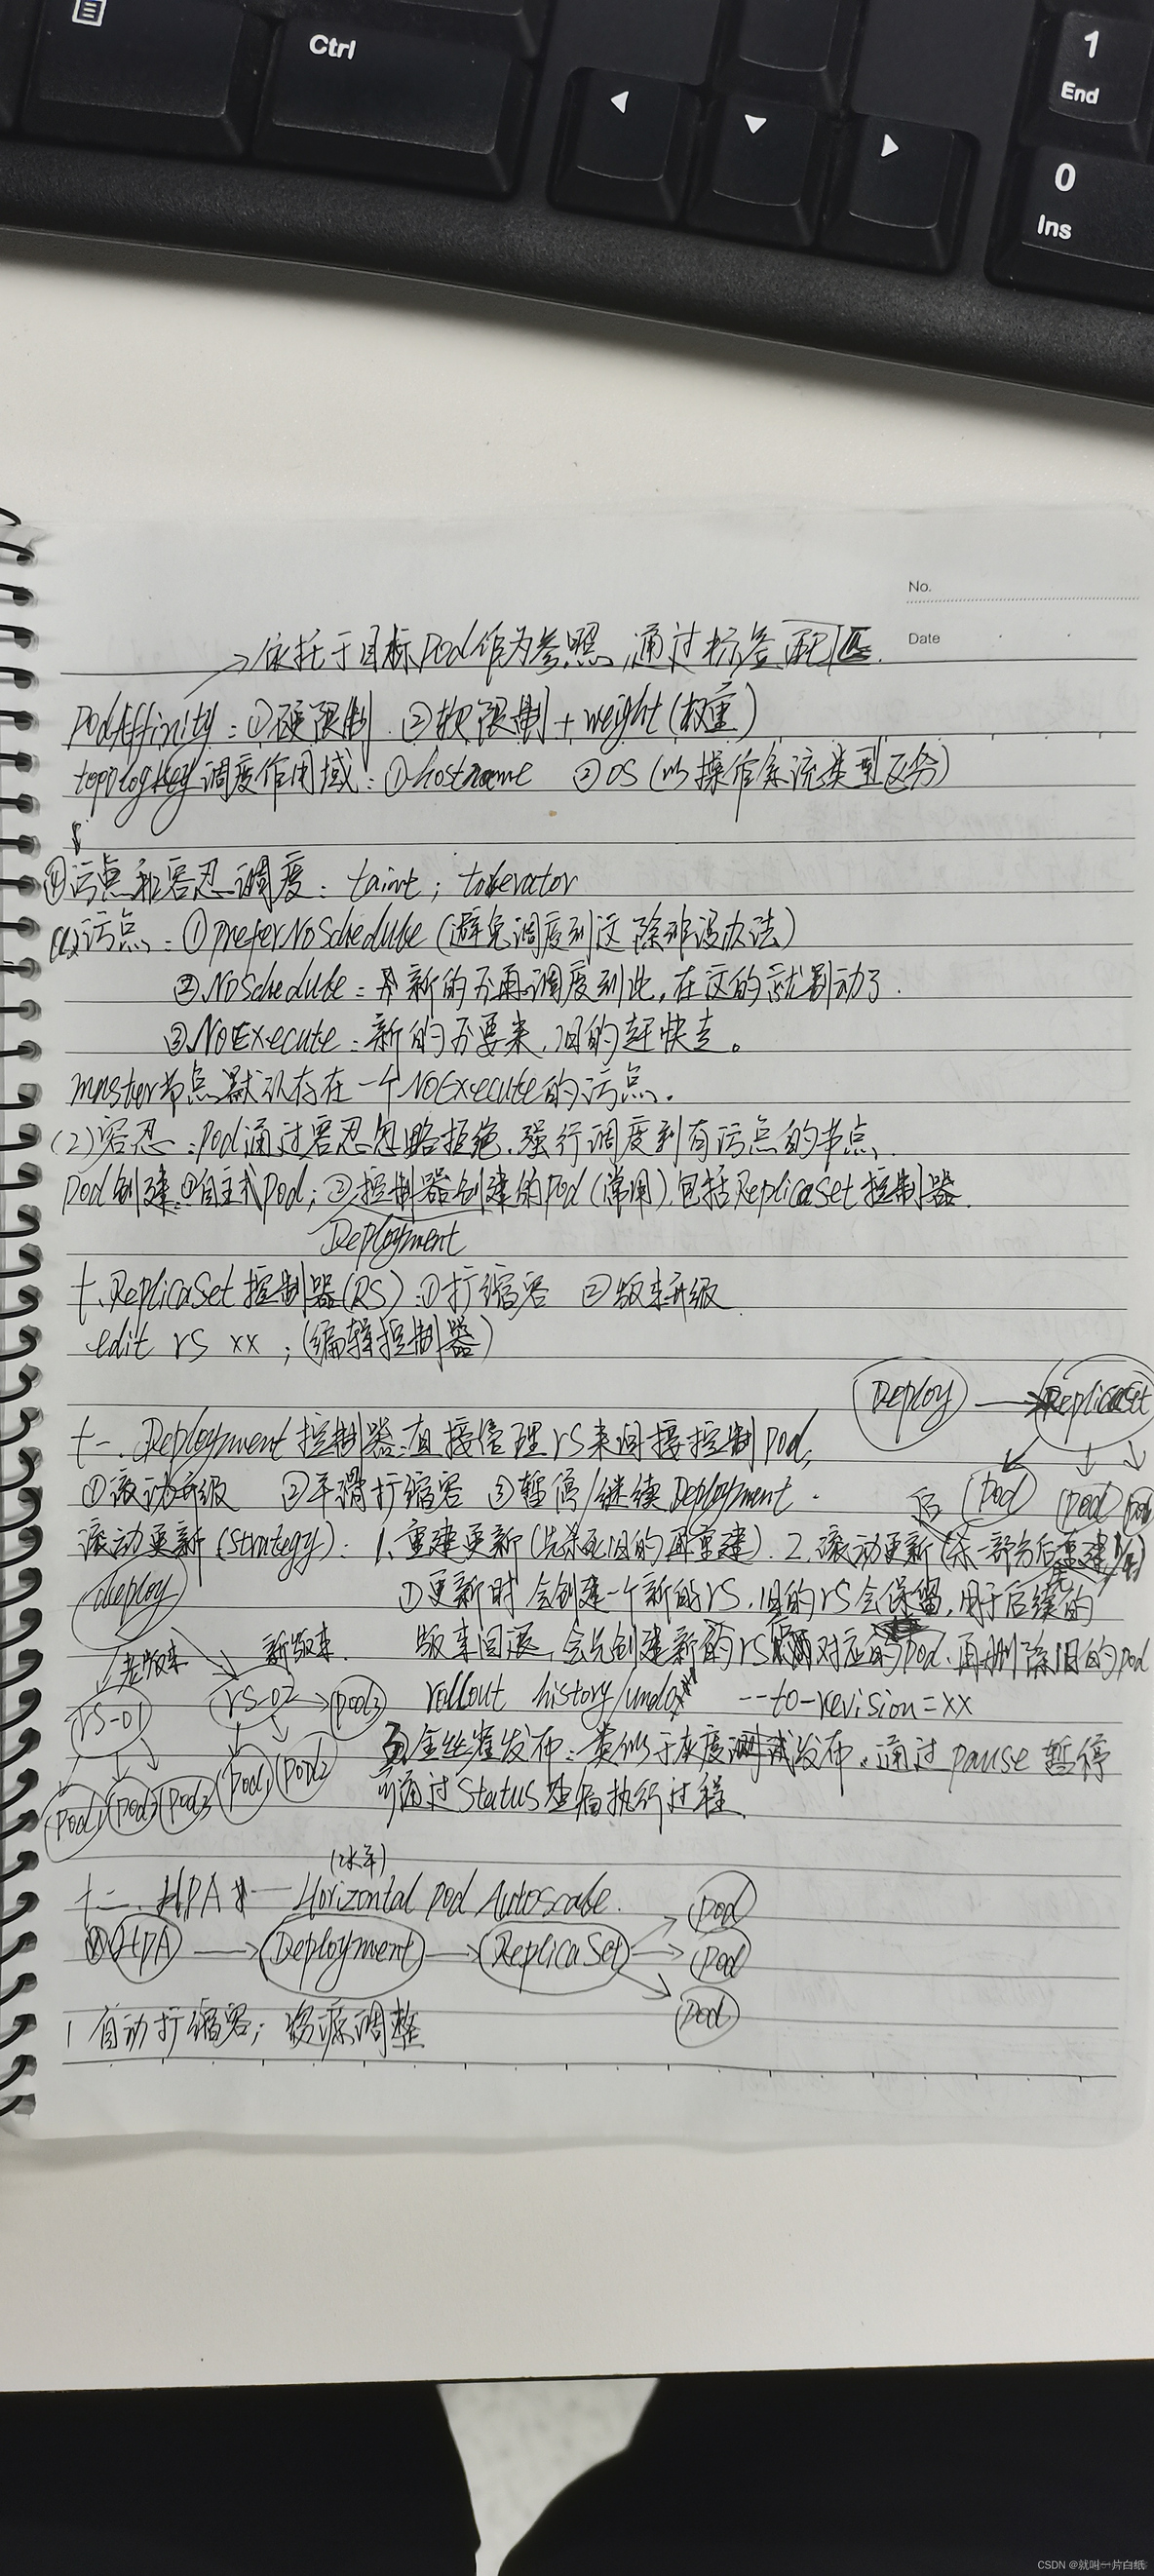 Ctrl
1
End
0
Ins
No.
Date
→依托于目标Pod作为参照,通过标签配匹.
PodAffinity:①硬限制.②软限制+weight(权重)
toplogkey调度作用域:①hostname ②OS(以操作系统类型区分)
④污点和容忍调度:taint;tolerator
(1)污点:①preferNoSchedule(避免调度到这 除非没办法)
②NoSchedule:新的不再调度到此,在这的就别动了.
③NoExecute:新的不要来,旧的赶快走。
master节点默认存在一个NoExecute的污点.
(2)容忍:Pod通过容忍忽略拒绝,强行调度到有污点的节点.
Pod创建①自主式Pod;②控制器创建的Pod(常用),包括ReplicaSet控制器.
Deployment
十.ReplicaSet控制器(RS):①扩缩容 ②版本升级
edit rs xx ;(编辑控制器)
Deploy → ReplicaSet
十一.Deployment控制器:直接管理rs来间接控制Pod,
①滚动升级 ②平滑扩缩容 ③暂停/继续Deployment.
Pod Pod Pod
滚动更新(Strategy):1、重建更新(先杀死旧的再重建).2、滚动更新(杀一部分后重建
Deploy
①更新时会创建一个新的rs,旧的rs会保留,用于后续的
老版本 新版本
版本回退,会先创建新的rs对应的Pod,再删除旧的Pod
rs-01 rs-02 → pod3
rollout history/undo --to-revision=xx
金丝雀发布:类似于灰度测试发布.通过pause暂停
Pod1 Pod2 Pod3 Pod1 Pod2
通过Status查看执行过程
(水平)
十二.HPA — Horizontal Pod Autoscale.
HPA → Deployment → ReplicaSet → Pod
Pod
Pod
1 自动扩缩容;资源调整
CSDN @就叫一片白纸